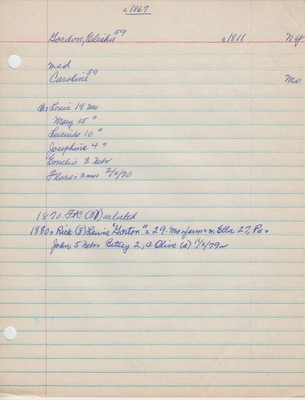 c1867
Gordon, Elisha 59 c1811 NY
med
Caroline 59 Mo
ch: Louis 18 Mo
Mary 15 "
Lucinda 10 "
Josephine 4 "
Emelia 2 Nebr
Flora 3mos 2/2/70
1870 FtC
1880: Rick (B) Lewis "Gorton" 29 Mo farm m. Ella 27, Pa
John 5 Nebr Betsy 2, & Olive (a) 11/2/79